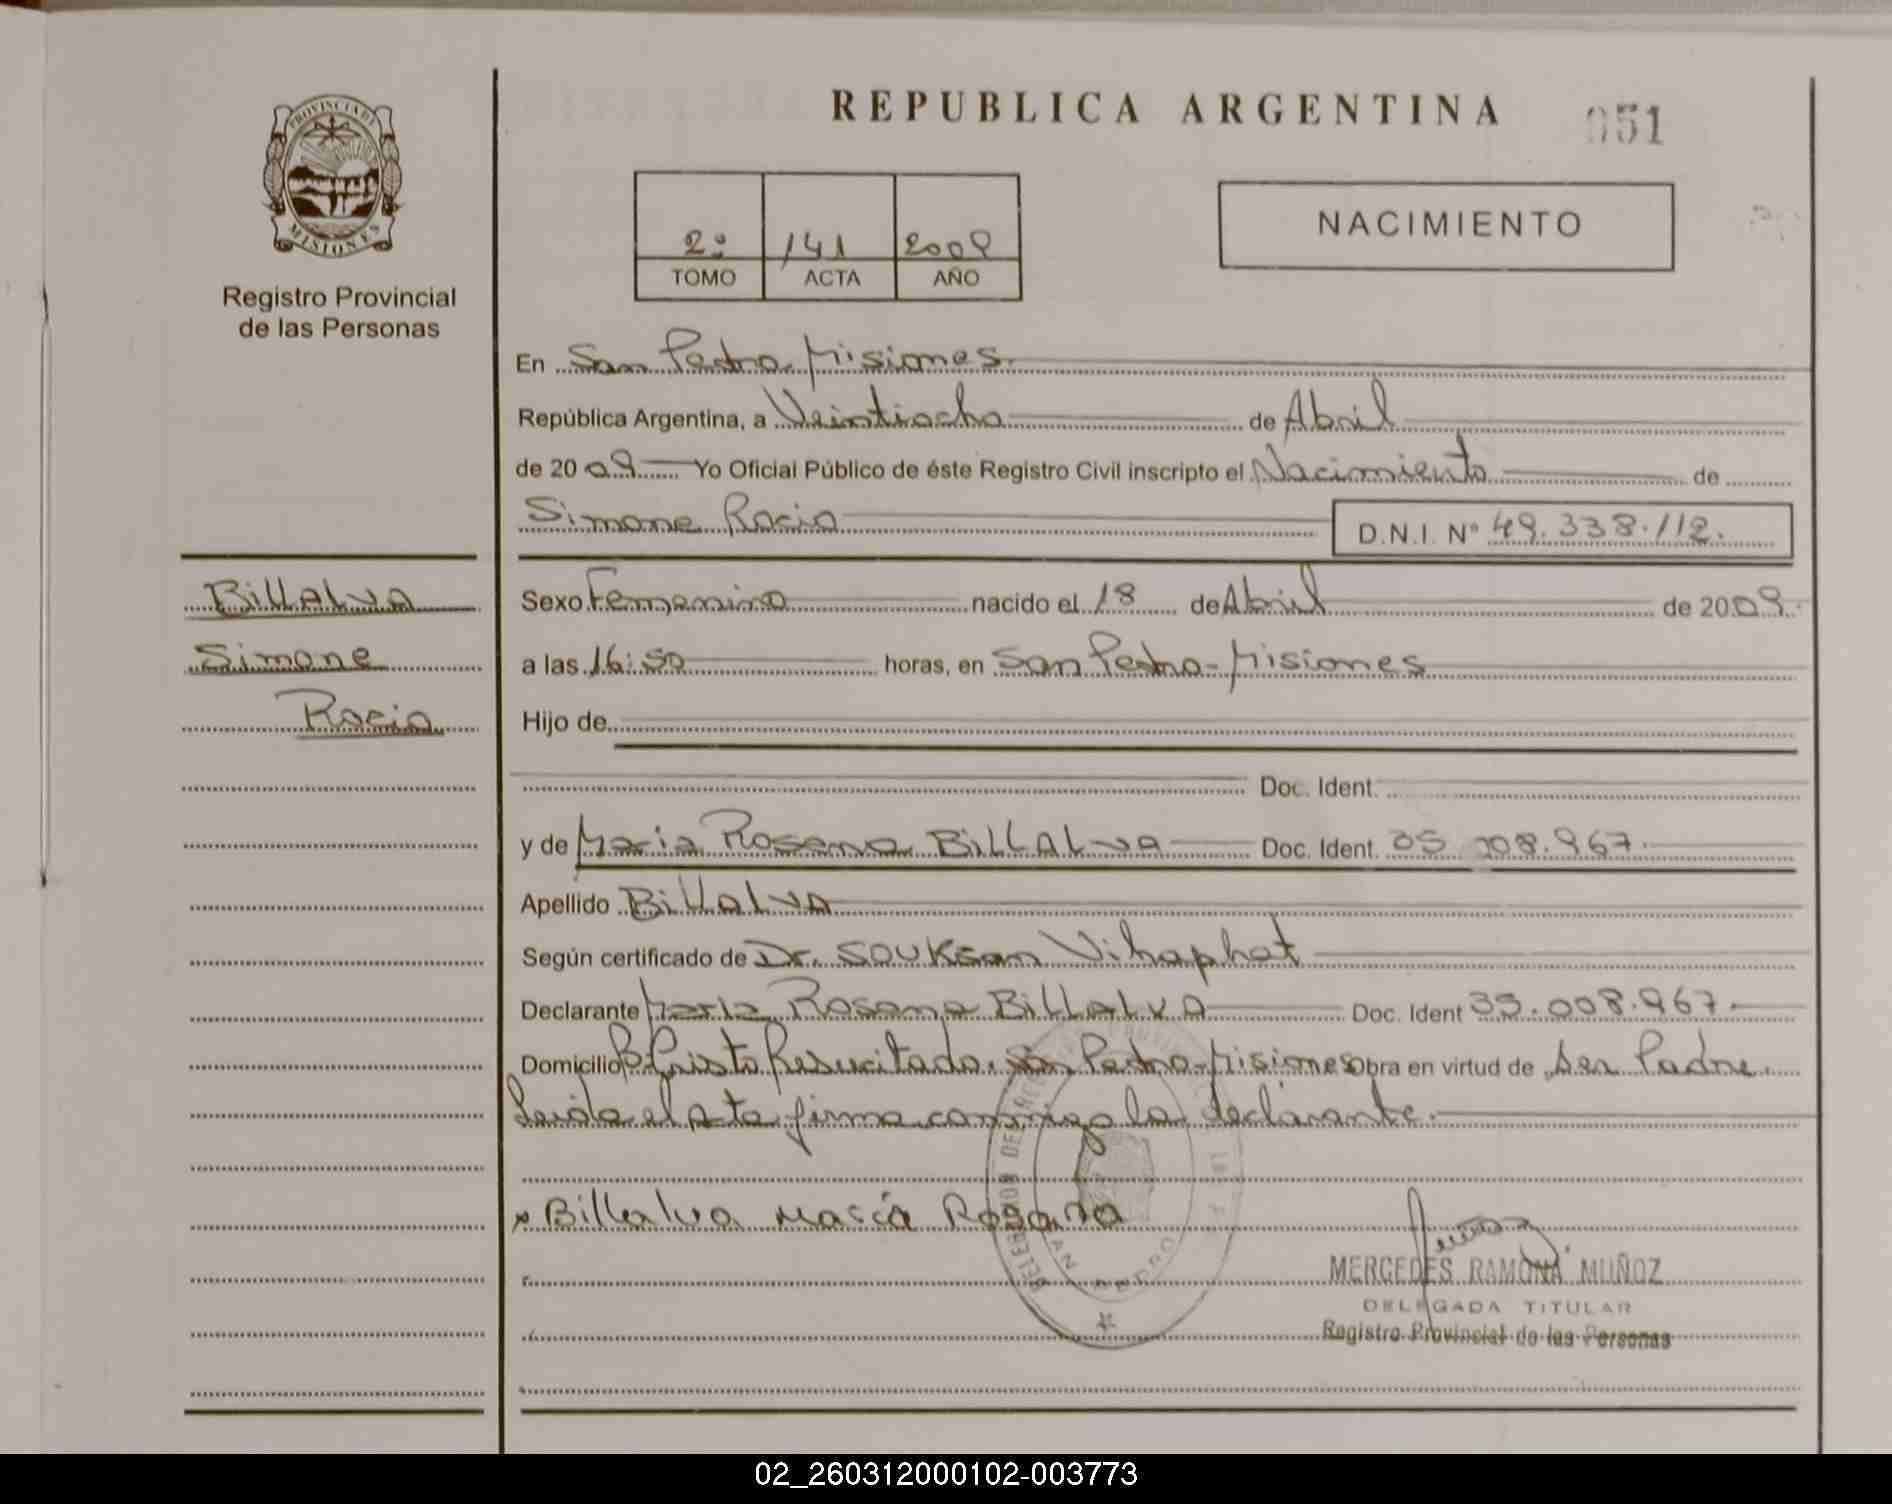 REPUBLICA ARGENTINA
051
PROVINCIA DE
MISIONES
Registro Provincial
de las Personas
2º 141 2009
TOMO ACTA AÑO
NACIMIENTO
En San Pedro Misiones
República Argentina, a Veintiocho de Abril
de 20 09 Yo Oficial Público de éste Registro Civil inscripto el Nacimiento de
Simone Rocio D.N.I. Nº 49.338.112.
Billalva
Simone
Rocio
Sexo Femenino nacido el 18 de Abril de 2009
a las 16:50 horas, en San Pedro - Misiones
Hijo de
Doc. Ident.
y de Maria Rosana Billalva Doc. Ident. 35 008.967
Apellido Billalva
Según certificado de Dr. Souksan Vihaphat
Declarante Maria Rosana Billalva Doc. Ident 35.008.967
Domicilio Bº Cristo Resucitado. San Pedro - Misiones Obra en virtud de Ser Padre.
Leida el Acta firma conmigo la declarante.
x Billalva María Rosana
SAN PEDRO
MERCEDES RAMONA MUÑOZ
DELEGADA TITULAR
Registro Provincial de las Personas
02_260312000102-003773